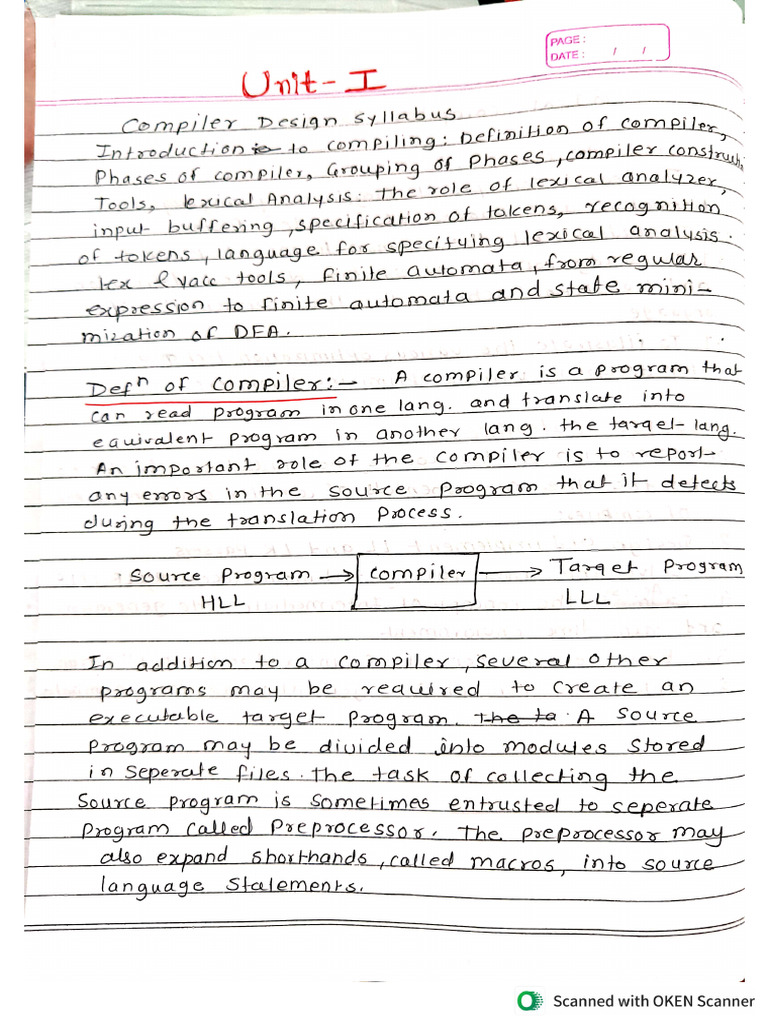 PAGE:
DATE: / /
Unit-I
Compiler Design Syllabus
Introduction to compiling: Definition of compiler,
Phases of compiler, Grouping of Phases, compiler constructn
Tools, Lexical Analysis: The role of lexical analyzer,
input buffering, specification of tokens, recognition
of tokens, language for specifying lexical analysis.
lex & yacc tools, finite automata, from regular
expression to finite automata and state mini-
mization of DFA.
Defn of compiler:- A compiler is a program that
can read program in one lang. and translate into
equivalent program in another lang. the target lang.
An important role of the compiler is to report
any errors in the source program that it detects
during the translation process.
Source Program → compiler → Target Program
HLL LLL
In addition to a compiler, several other
programs may be required to create an
executable target program. The ta A source
program may be divided into modules stored
in seperate files. The task of collecting the
source program is sometimes entrusted to seperate
program called Preprocessor. The preprocessor may
also expand shorthands, called macros, into source
language statements.
Scanned with OKEN Scanner